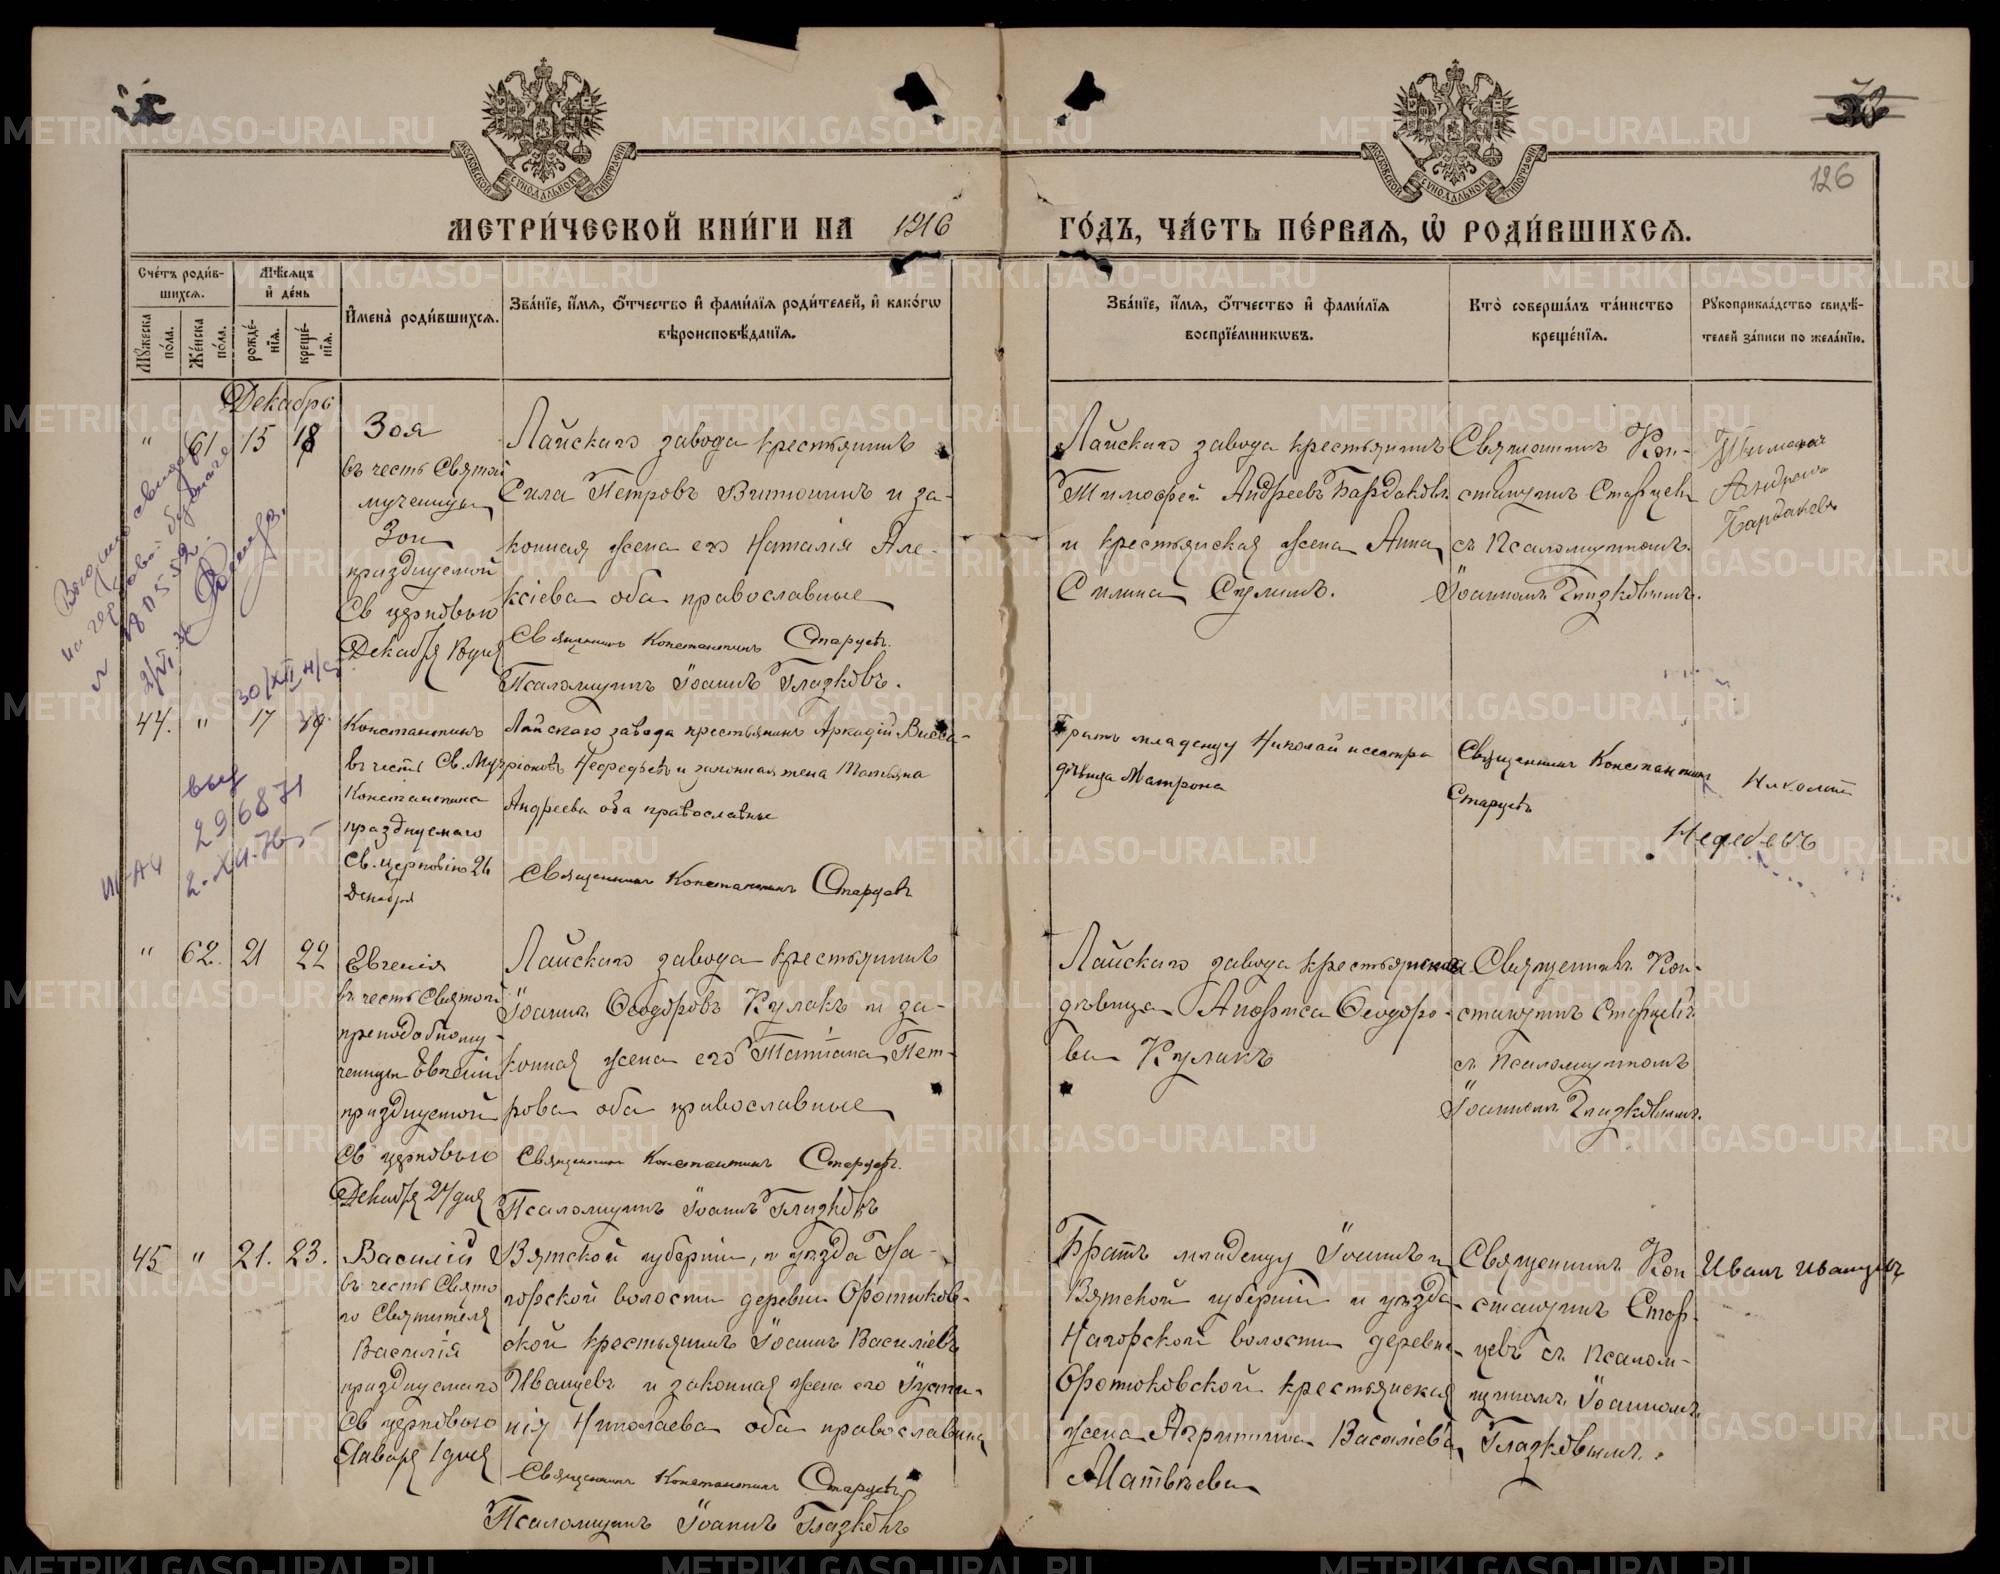 126
МЕТРИ́ЧЕСКОЙ КНИ́ГИ НА 1916 ГО́ДЪ, ЧА́СТЬ ПЕ́РВАЯ, Ѡ҆ РОДИ́ВШИХСЯ.
Сче́тъ роди́в-
шихся.
Мꙋ́жеска по́ла.
Же́нска по́ла.
Мѣ́сяцъ
и҆ де́нь
рожде́-
нїѧ.
креще́-
нїѧ.
И҆мена̀ роди́вшихся.
Зва́нїе, и҆́мя, ѻ҆́тчество и҆ фами́лїя роди́телей, и҆ како́гѡ
вѣроисповѣ́данїя.
Зва́нїе, и҆́мя, ѻ҆́тчество и҆ фами́лїя
воспрїе́мникѡвъ.
Кто̀ соверша́лъ та́инство
креще́нїя.
Рꙋкоприкла́дство свидѣ́-
телей за́писи по жела́нїю.
Декабрь
" 61 15 18
Зоя
въ честь Святой
мученицы
Зои
празднуемой
Св церковью
Декабря 18 дня
Лайскаго завода крестьянинъ
Сила Петровъ Витюнинъ и за-
конная жена его Наталія Але-
ксіева оба православные
Священникъ Константинъ Старцевъ.
Псаломщикъ Іоаннъ Глазковъ.
Лайскаго завода крестьянинъ
Тимофей Андреевъ Бардаковъ
и крестьянская жена Анна
Силина
Священникъ Кон-
стантинъ Старцевъ
съ Псаломщикомъ
Іоанномъ Глазковымъ.
Бардаковъ
30/XII н/ст
44. " 17 19
Константинъ
въ честь Св. Муч
Константина
празднуемаго
Св. церковію 26
Декабря
Лайскаго завода крестьянинъ Аркадій Висса-
ріоновъ Нефедьевъ и законная жена Татьяна
Андреева оба православные
Священникъ Константинъ Старцевъ
Братъ младенцу Николай и сестра
дѣвица Матрона
Священникъ Константинъ
Старцевъ
Николай
Нефедьевъ
296871
" 62. 21 22
Евгенія
въ честь Святой
преподобному-
ченицы Евгеніи
празднуемой
Св церковью
Декабря 24 дня
Лайскаго завода крестьянинъ
Іоаннъ Ѳеодоровъ Кулакъ и за-
конная жена его Татіана Пет-
рова оба православные
Священникъ Константинъ Старцевъ.
Псаломщикъ Іоаннъ Глазковъ
Лайскаго завода крестьянская
дѣвица Анфиса Ѳеодоро-
ва Кулакъ
Священникъ Кон-
стантинъ Старцевъ
съ Псаломщикомъ
Іоанномъ Глазковымъ.
45 " 21. 23.
Василій
въ честь Свято
го Святителя
Василія
празднуемаго
Св церковью
Января 1 дня
Вятской губерніи, и уѣзда На-
горской волости деревни Фотюков-
ской крестьянинъ Іоаннъ Василіевъ
Иванцевъ и законная жена его Іусти-
нія Николаева оба православные
Священникъ Константинъ Старцевъ
Псаломщикъ Іоаннъ Глазковъ
Братъ младенцу Іоаннъ и
Вятской губерніи и уѣзда
Нагорской волости деревни
Фотюковской крестьянская
жена Агриппина Василіева
Матвѣева
Священникъ Кон
стантинъ Стар-
цевъ съ Псалом-
щикомъ Іоанномъ
Глазковымъ.
Иванъ Иванцевъ
METRIKI.GASO-URAL.RU